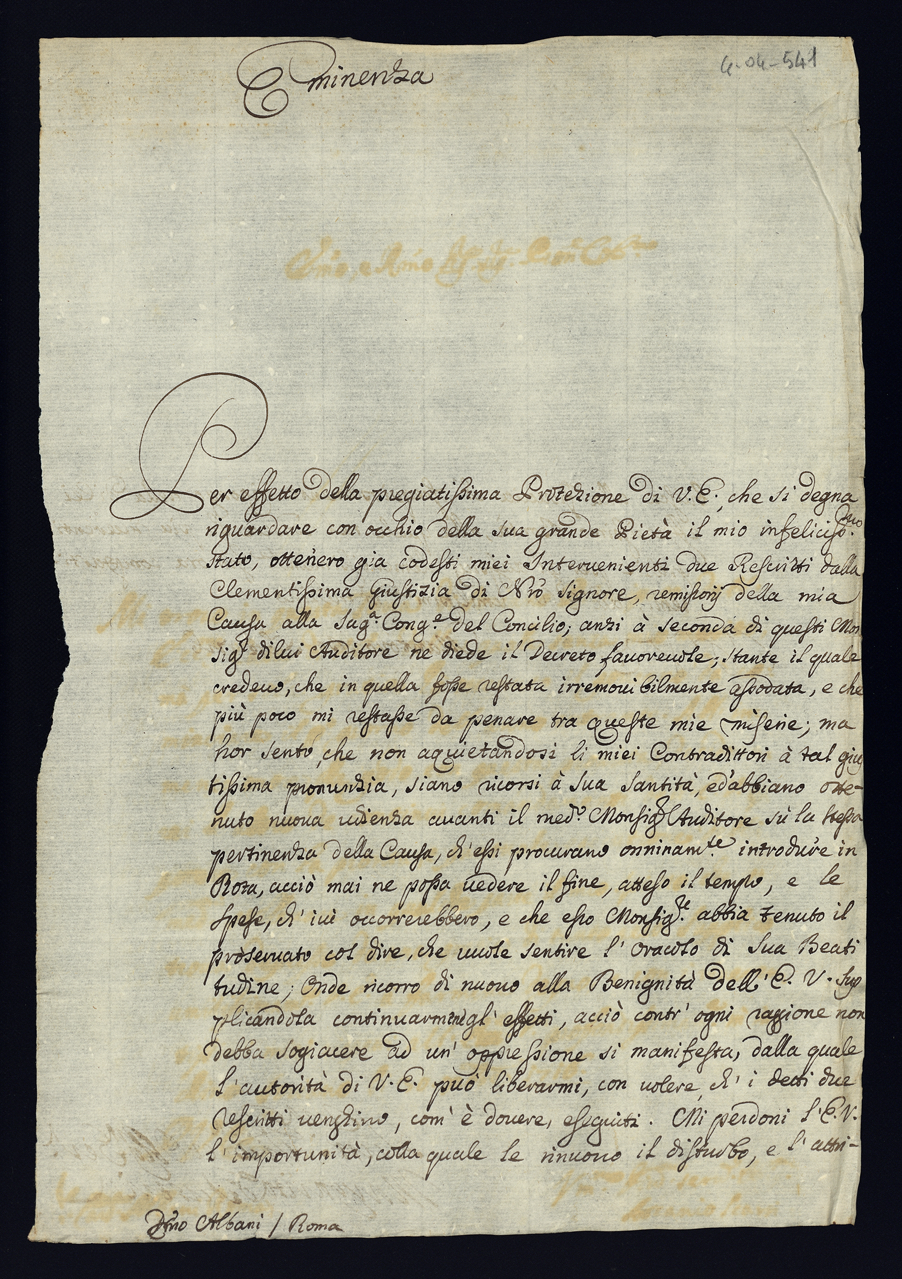 4-04-541
Eminenza
Per effetto della pregiatissima Protezione di V. E., che si degna
riguardare con occhio della sua grande Pietà il mio infelicis.mo
stato, ottenero gia codesti miei Interuenienti due Rescritti dalla
Clementissima Giustizia di Nro Signore, remissorij della mia
Causa alla Sag.a Cong.e del Concilio; anzi à seconda di questi Mon
sig.r di lui Auditore ne diede il Decreto fauoreuole; stante il quale
credeuo, che in quella fosse restata irremouibilmente assodata, e che
più poco mi restasse da penare tra queste mie miserie; ma
hor sento, che non aquietandosi li miei Contradittori à tal gius
tissima pronunzia, siano ricorsi à Sua Santità, ed'abbiano otte-
nuto nuoua udienza auanti il med.o Monsig.r Auditore sù la stessa
pertinenza della Causa, ch'essi procurano onninam.te introdure in
Rota, acciò mai ne possa uedere il fine, atteso il tempo, e le
spese, ch'iui occorrerebbero, e che esso Monsig.re abbia tenuto il
preseruato col dire, che uuole sentire l'Oracolo di Sua Beati
tudine; Onde ricorro di nuouo alla Benignità dell'E. V. sup
plicandola continuarmi gl'effetti, acciò contr'ogni raggione non
debba sogiacere ad un'oppressione si manifesta, dalla quale
l'autorità di V. E. può liberarmi, con uolere, ch'i detti due
rescritti uenghino, com'è douere, eseguiti. Mi perdoni l'E. V.
l'importunità, colla quale le rinuouo il disturbo, e l'attri-
Albani / Roma